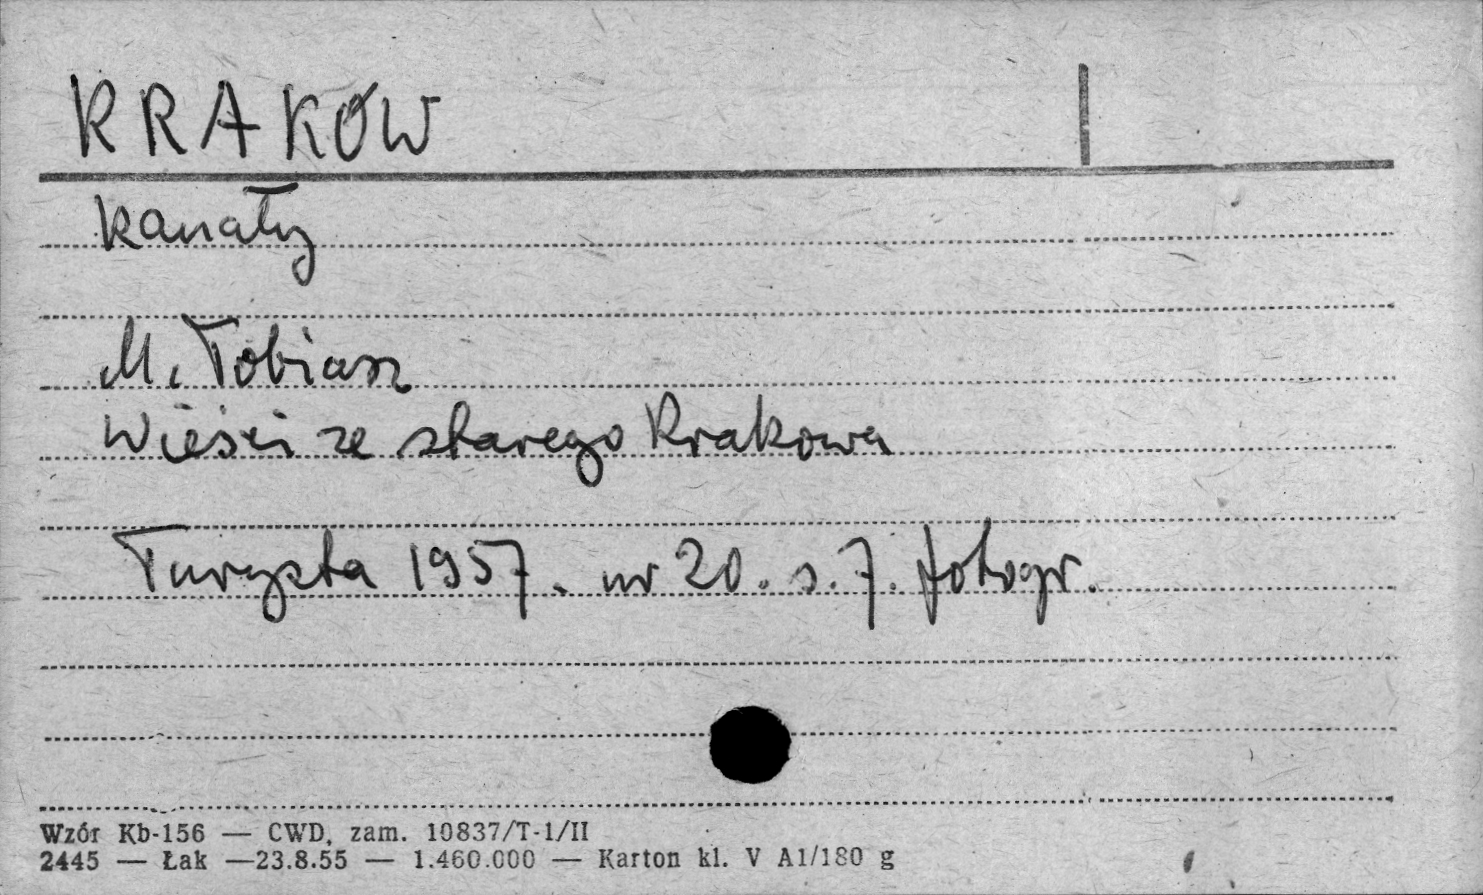 KRAKÓW
kanały
M. Tobiasz
Wieści ze starego Krakowa
Turysta 1957. nr 20. s. 7. fotogr.
Wzór Kb-156 — CWD, zam. 10837/T-1/II
2445 — Łak —23.8.55 — 1.460.000 — Karton kl. V A1/180 g